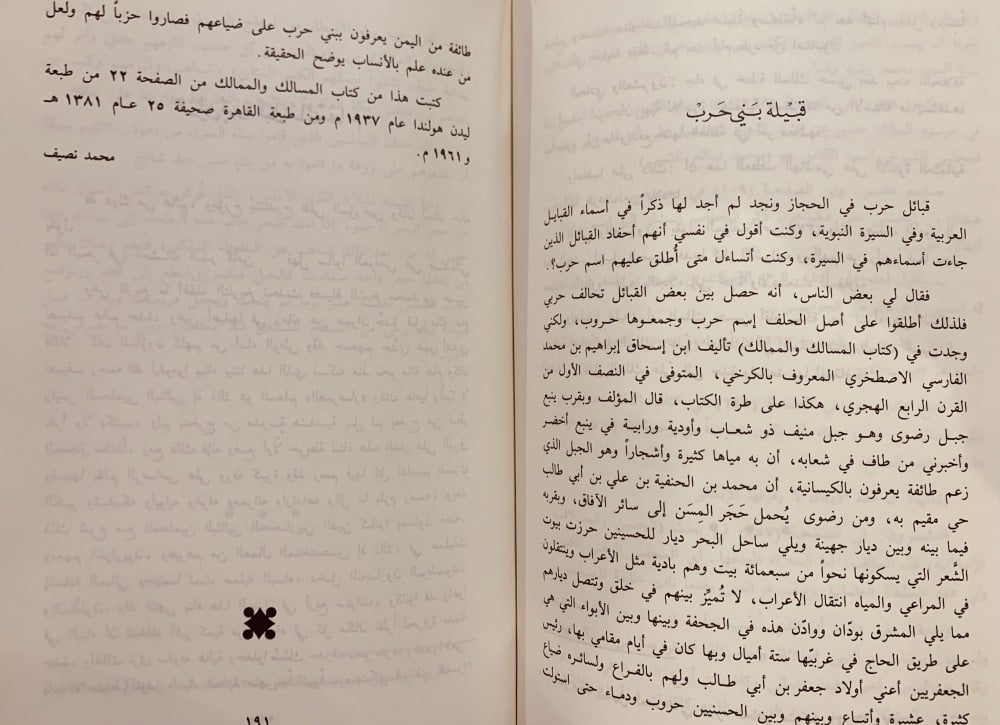 قبيلة بَني حَربْ
قبائل حرب في الحجاز ونجد لم أجد لها ذكراً في أسماء القبايل
العربية وفي السيرة النبوية، وكنت أقول في نفسي أنهم أحفاد القبائل الذين
جاءت أسماءهم في السيرة، وكنت أتساءل متى أُطلق عليهم اسم حرب؟.
فقال لي بعض الناس، أنه حصل بين بعض القبائل تحالف حربي
فلذلك أطلقوا على أصل الحلف إسم حرب وجمعـوها حـروب، ولكني
وجدت في (كتاب المسالك والممالك) تأليف ابن إسحاق إبراهيم بن محمد
الفارسي الاصطخري المعروف بالكرخي، المتوفى في النصف الأول من
القرن الرابع الهجري، هكذا على طرة الكتاب، قال المؤلف وبقرب ينبع
جبـل رضوى وهـو جبل منيف ذو شعـاب وأودية ورابيـة في ينبع أخضر
وأخبرني من طاف في شعابه، أن به مياها كثيرة وأشجاراً وهو الجبل الذي
زعم طائفة يعرفون بالكيسانية، أن محمد بن الحنفية بن علي بن أبي طالب
حي مقيم به، ومن رضوى يُحمل حَجَر المسَن إلى سائر الآفاق، وبقربه
فيما بينه وبين ديار جهينة ويلي ساحل البحر ديار للحسينين حرزت بيوت
الشَّعر التي يسكونها نحواً من سبعمائة بيت وهم بادية مثل الأعراب وينتقلون
في المراعي والمياه انتقال الأعراب، لا تُميِّز بينهم في خلق وتتصل ديارهم
مما يلي المشرق بودّان وودّان هذه في الجحفة وبينها وبين الأبواء التي هي
على طريق الحاج في غربيّها ستة أميال وبها كان في أيام مقامي بها، رئيس
الجعفريين أعني أولاد جعفر بن أبي طـالب ولهم بالفـراع ولسائـره ضياع
كثيرة، عشيرة وأتبـاع وبينهم وبين الحسنيين حروب ودمـاء حتى استولت
طائفة من اليمن يعرفون ببني حرب على ضياعهم فصاروا حزباً لهم ولعل
من عنده علم بالأنساب يوضح الحقيقة.
كتبت هذا من كتاب المسالك والممالك من الصفحة ٢٢ من طبعة
ليدن هولندا عام ١٩٣٧ م ومن طبعة القاهرة صحيفة ٢٥ عـام ١٣٨١ هـ
و١٩٦١ م.
محمد نصيف
١٩١